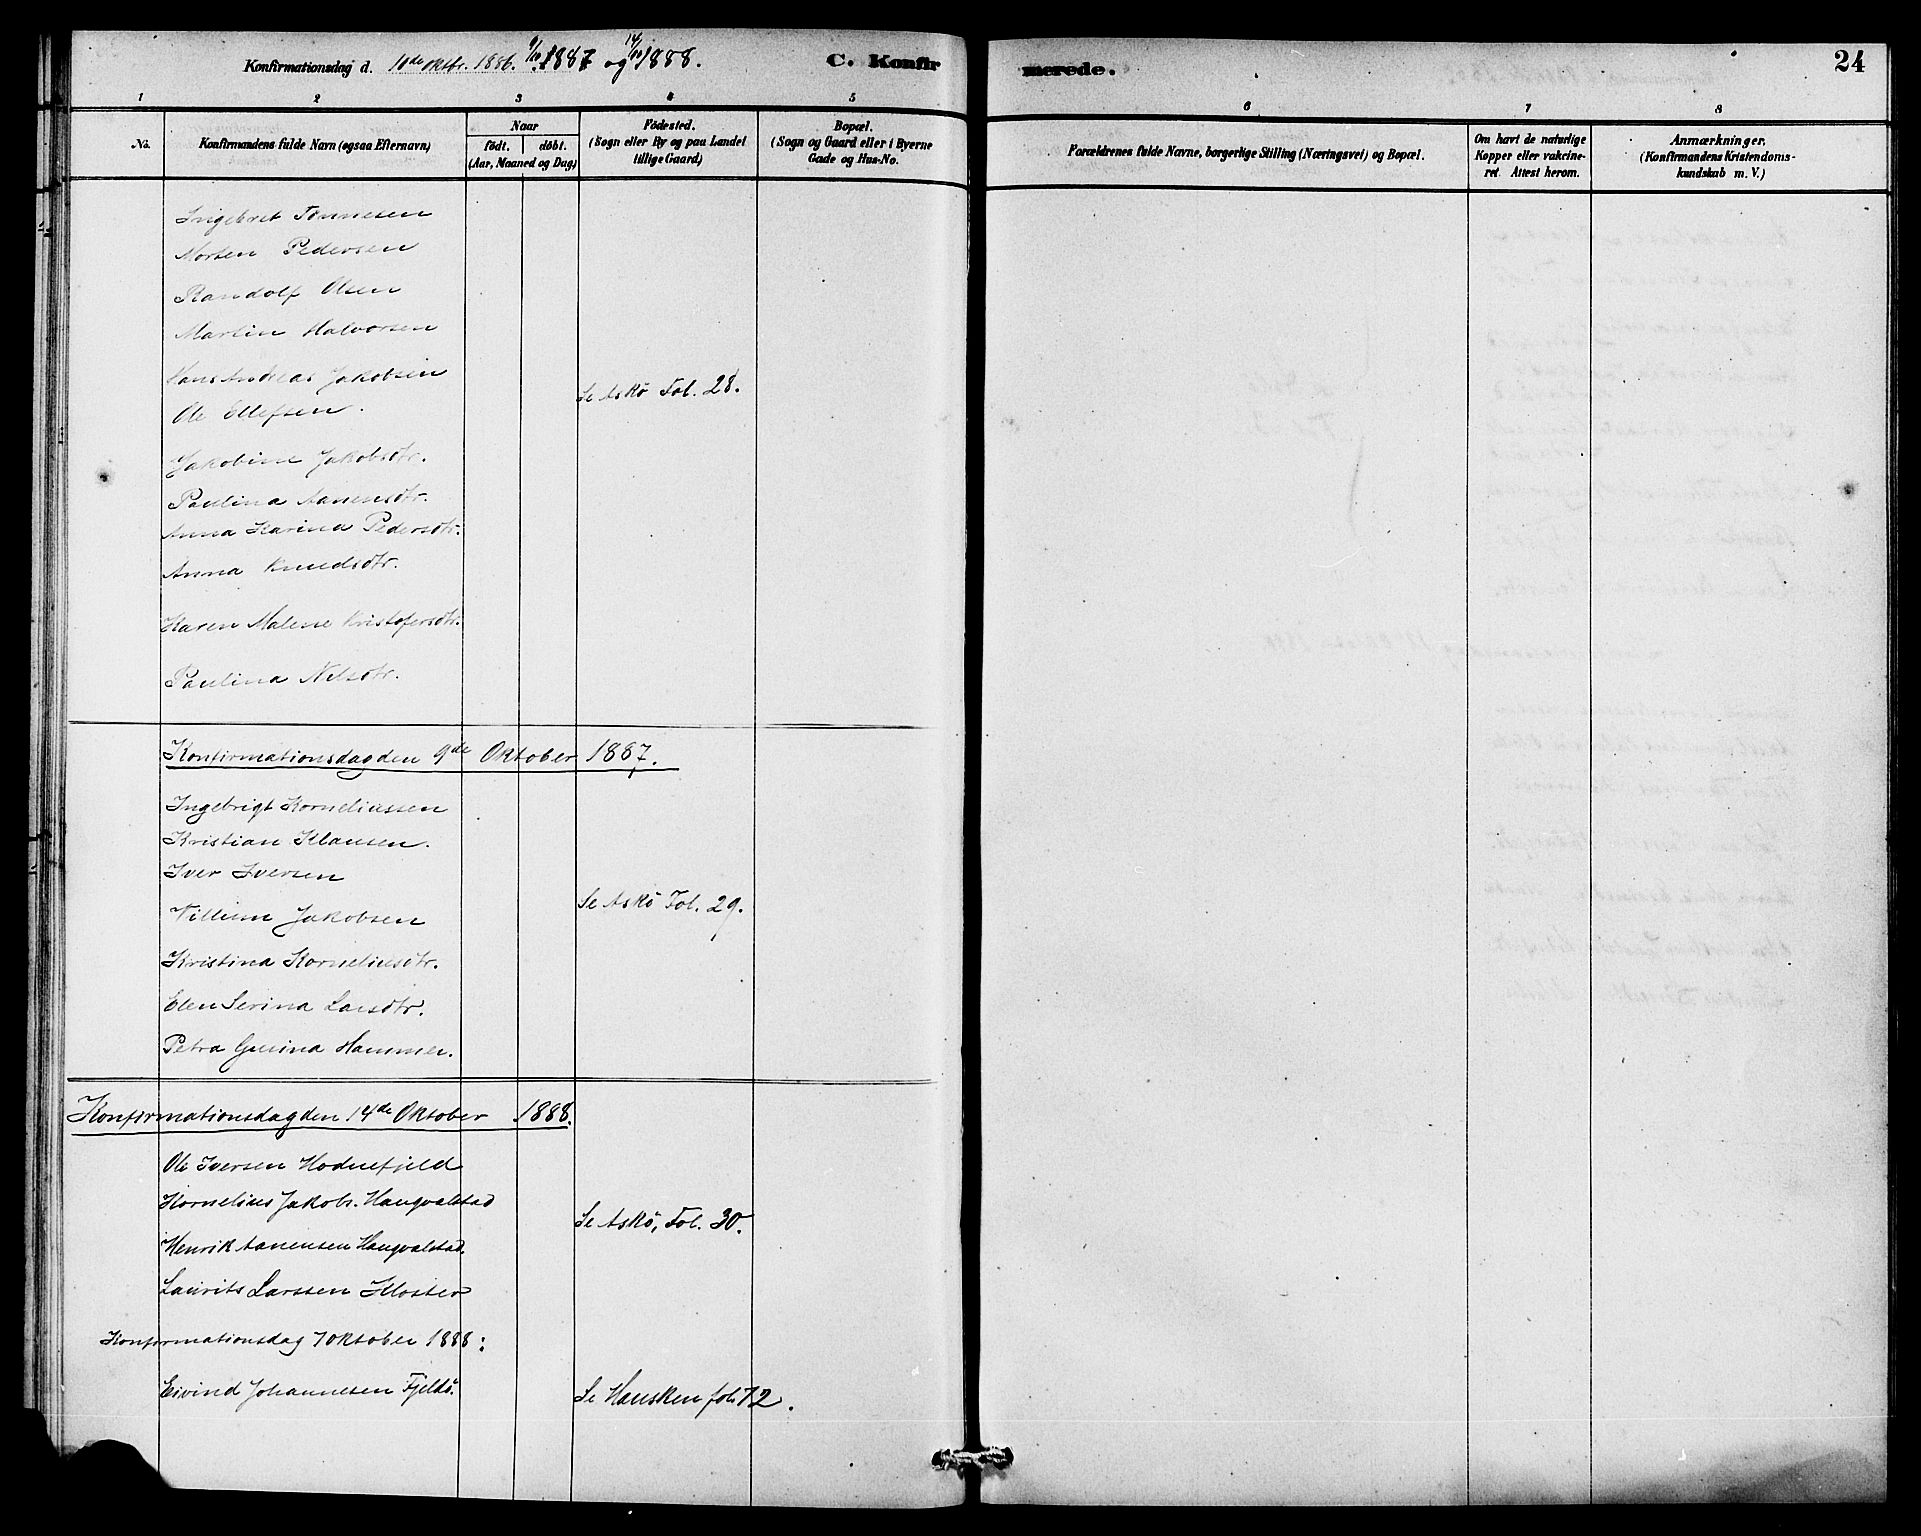 Konfirmationsdag d. 10de Oktbr. 1886. 9/10 1887 og 14/10 1888.
C. Konfirmerede.
24
1 2 3 4 5 6 7 8
No.
Konfirmandens fulde Navn (ogsaa Efternavn)
Naar
födt. döbt.
(Aar, Maaned og Dag)
Födested.
(Sogn eller By og paa Landet
tillige Gaard)
Bopæl.
(Sogn og Gaard eller i Byerne
Gade og Hus-No.
Forældrenes fulde Navne, borgerlige Stilling (Næringsvei) og Bopæl.
Om havt de naturlige
Kopper eller vakcine-
ret. Attest herom.
Anmærkninger.
(Konfirmandens Kristendoms-
kundskab m. V.)
Ingebret Tönnesen
Morten Pedersen
Randolf Olsen
Martin Halvorsen
Hans Andreas Jakobsen
Se Askö Fol. 28.
Ole Ellefsen.
Jakobine Jakobsdtr.
Paulina Aanensdtr.
Anna Karina Pedersdtr.
Anna Knudsdtr.
Karen Malene Kristofersdtr.
Paulina Nilsdtr.
Konfirmationsdag den 9de Oktober 1887.
Ingebrigt Korneliussen
Kristian Klausen.
Iver Iversen
Se Askö Fol. 29.
Villum Jakobsen
Kristina Korneliusdtr.
Elen Serina Larsdtr.
Petra Gurina Hammer.
Konfirmationsdag den 14de Oktober 1888.
Ole Iversen Hodnefjeld
Kornelius Jakobs. Haugvalstad
Se Askö, Fol. 30.
Henrik Aanensen Haugvalstad.
Laurits Larssen Kloster
Konfirmationsdag 7 Oktober 1888:
Eivind Johannesen Fjeldö.
Se Hausken fol. 72.